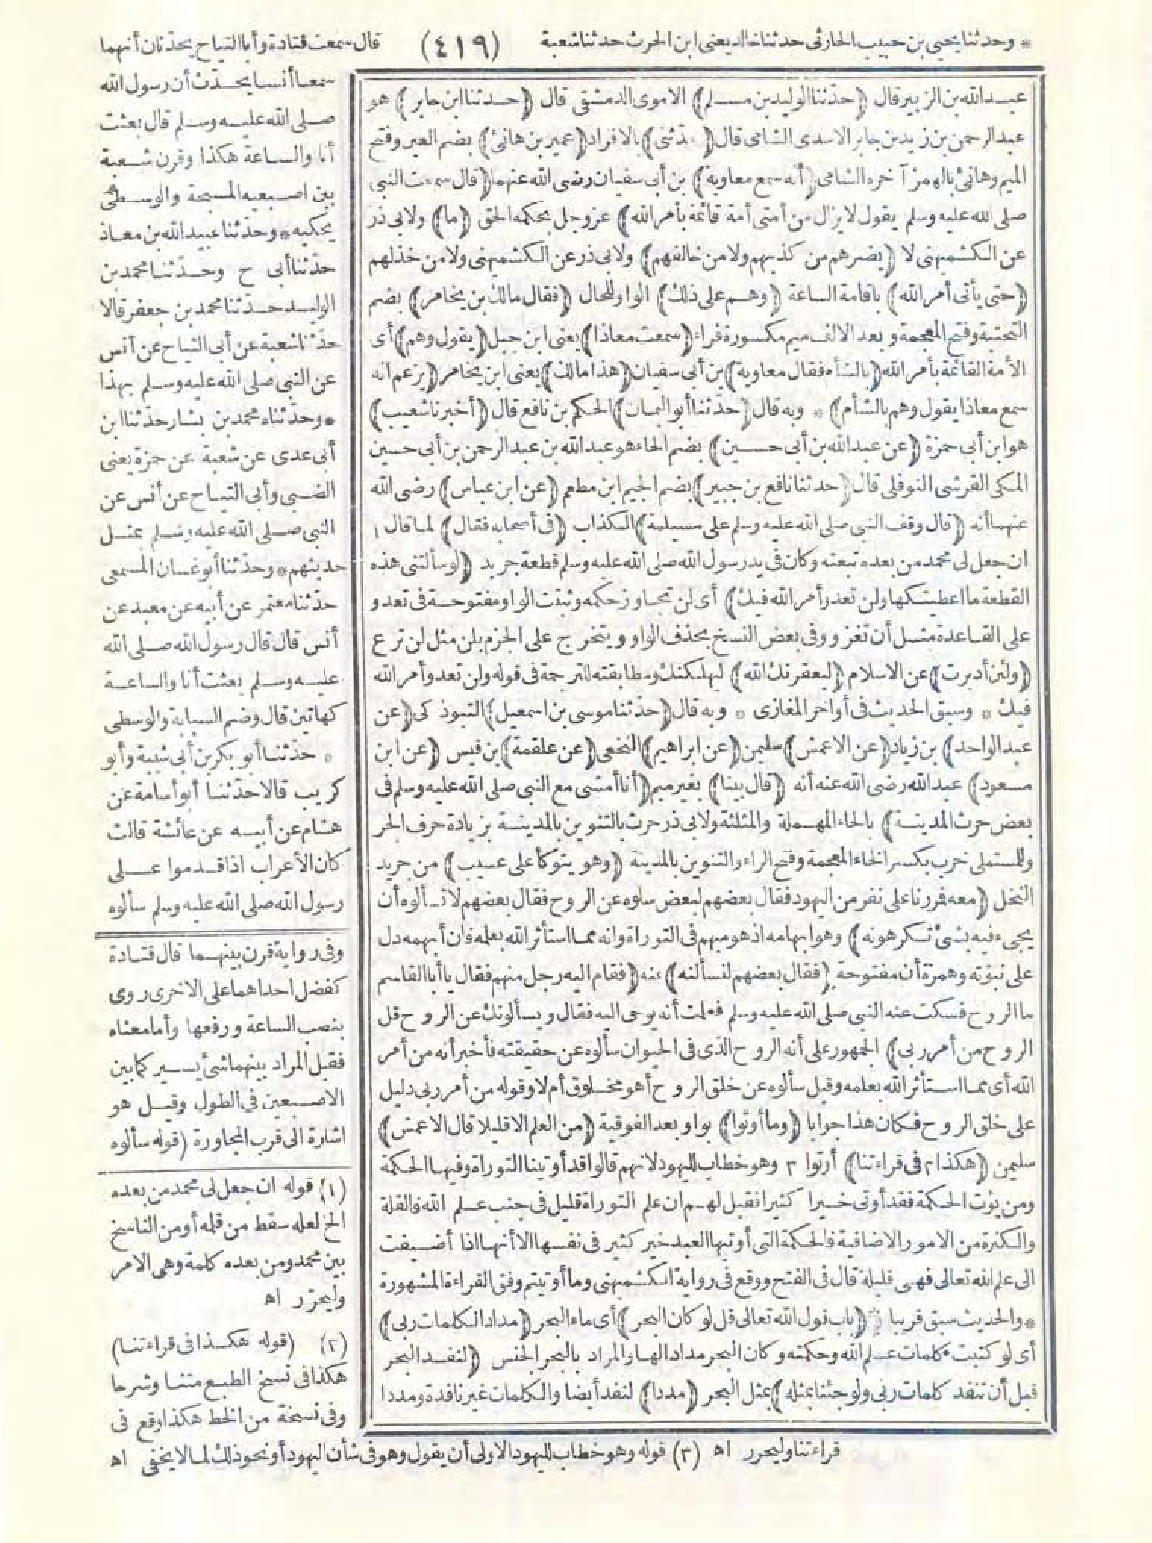 * وحدثنا يحيى بن حبيب الحارثى حدثنا خالد يعنى ابن الحرث حدثنا شعبة (٤١٩) قال سمعت قتادة وأبا التياح يحدثان أنهما
سمعا أنسا يحدث أن رسول الله
صلى الله عليه وسلم قال بعثت
أنا والساعة هكذا وقرن شعبة
بين اصبعيه المسبحة والوسطى
يحكيه * وحدثنا عبيد الله بن معاذ
حدثنا أبى ح وحدثنا محمد بن
الوليد حدثنا محمد بن جعفر قالا
حدثنا شعبة عن أبى التياح عن أنس
عن النبى صلى الله عليه وسلم بهذا
* وحدثناه محمد بن بشار حدثنا ابن
أبى عدى عن شعبة عن حمزة يعنى
الضبى وأبى التياح عن أنس عن
النبى صلى الله عليه وسلم بمثل
حديثهم * وحدثنا أبو غسان المسمعى
حدثنا معتمر عن أبيه عن معبد عن
أنس قال قال رسول الله صلى الله
عليه وسلم بعثت أنا والساعة
كهاتين قال وضم السبابة والوسطى
* حدثنا أبو بكر بن أبى شيبة وأبو
كريب قالا حدثنا أبو أسامة عن
هشام عن أبيه عن عائشة قالت
كان الأعراب اذا قدموا على
رسول الله صلى الله عليه وسلم سألوه
وفى رواية قرن بينهما قال قتادة
كفضل احداهما على الاخرى روى
بنصب الساعة ورفعها وأما معناه
فقيل المراد بينهما شئ يسير كما بين
الاصبعين فى الطول وقيل هو
اشارة الى قرب المجاورة (قوله سألوه
عبد الله بن الزبير قال (حدثنا الوليد بن مسلم) الاموى الدمشقى قال (حدثنا ابن جابر) هو
عبد الرحمن بن زيد بن جابر الاسدى الشامى قال (حدثنى) بالافراد (عمير بن هانئ) بضم العين وفتح
الميم وهانئ بالهمز آخره الشامى (أنه سمع معاوية) بن أبى سفيان رضى الله عنهما (قال سمعت النبى
صلى الله عليه وسلم يقول لا يزال من أمتى أمة قائمة بأمر الله) عز وجل بحكمه الحق (ما) ولابى ذر
عن الكشميهنى لا (يضرهم من كذبهم ولا من خالفهم) ولابى ذر عن الكشميهنى ولا من خذلهم
(حتى يأتى أمر الله) باقامة الساعة (وهم على ذلك) الواو للحال (فقال مالك بن يخامر) بضم
التحتية وفتح المعجمة وبعد الالف ميم مكسورة فراء (سمعت معاذا) يعنى ابن جبل (يقول وهم) أى
الأمة القائمة بأمر الله (بالشأم فقال معاوية) بن أبى سفيان (هذا مالك) يعنى ابن يخامر (يزعم أنه
سمع معاذا يقول وهم بالشأم) * وبه قال (حدثنا أبو اليمان) الحكم بن نافع قال (أخبرنا شعيب)
هو ابن أبى حمزة (عن عبد الله بن أبى حسين) بضم الحاء هو عبد الله بن عبد الرحمن بن أبى حسين
المكى القرشى النوفلى قال (حدثنا نافع بن جبير) بضم الجيم ابن مطعم (عن ابن عباس) رضى الله
عنهما أنه (قال وقف النبى صلى الله عليه وسلم على مسيلمة) الكذاب (فى أصحابه فقال) لما قال ١
ان جعل لى محمد من بعده تبعته وكان فى يد رسول الله صلى الله عليه وسلم قطعة جريد (لو سألتنى هذه
القطعة ما أعطيتكها ولن تعدو أمر الله فيك) أى لن تجاوز حكمه وثبتت الواو مفتوحة فى تعدو
على القاعدة مثل أن تغزو وفى بعض النسخ بحذف الواو ويتخرج على الجزم بلن مثل لن ترع
(ولئن أدبرت) عن الاسلام (ليعقرنك الله) ليهلكنك ومطابقته للترجمة فى قوله ولن تعدو أمر الله
فيك * وسبق الحديث فى أواخر المغازى * وبه قال (حدثنا موسى بن اسمعيل) التبوذكى (عن
عبد الواحد) بن زياد (عن الاعمش) سليمن (عن ابراهيم) النخعى (عن علقمة) بن قيس (عن ابن
مسعود) عبد الله رضى الله عنه أنه (قال بينا) بغير ميم (أنا أمشى مع النبى صلى الله عليه وسلم فى
بعض حرث المدينة) بالحاء المهملة والمثلثة ولابى ذر حرث بالتنوين بالمدينة بزيادة حرف الجر
وللمستملى خرب بكسر الخاء المعجمة وفتح الراء والتنوين بالمدينة (وهو يتوكأ على عسيب) من جريد
النخل (معه فمررنا على نفر من اليهود فقال بعضهم لبعض سلوه عن الروح فقال بعضهم لا تسألوه أن
يجىء فيه بشئ تكرهونه) وهو ابهامه اذ هو مبهم فى التوراة وانه مما استأثر الله بعلمه فان أبهمه دل
على نبوته وهمزة أن مفتوحة (فقال بعضهم لنسألنه) عنه (فقام اليه رجل منهم فقال يا أبا القاسم
ما الروح فسكت عنه النبى صلى الله عليه وسلم فعلمت أنه يوحى اليه فقال ويسألونك عن الروح قل
الروح من أمر ربى) الجمهور على أنه الروح الذى فى الحيوان سألوه عن حقيقته فأخبر أنه من أمر
الله أى مما استأثر الله بعلمه وقيل سألوه عن خلق الروح أهو مخلوق أم لا وقوله من أمر ربى دليل
على خلق الروح فكان هذا جوابا (وما أوتوا) بواو بعد الفوقية (من العلم الا قليلا قال الاعمش)
سليمن (هكذا ٢ فى قراءتنا) أوتوا ٣ وهو خطاب لليهود لانهم قالوا قد أوتينا التوراة وفيها الحكمة
ومن يؤت الحكمة فقد أوتى خيرا كثيرا فقيل لهم ان علم التوراة قليل فى جنب علم الله فالقلة
والكثرة من الامور الاضافية فالحكمة التى أوتيها العبد خير كثير فى نفسها الا أنها اذا أضيفت
الى علم الله تعالى فهى قليلة قال فى الفتح ووقع فى رواية الكشميهنى وما أوتيتم وفق القراءة المشهورة
* والحديث سبق قريبا (باب قول الله تعالى قل لو كان البحر) أى ماء البحر (مدادا لكلمات ربى)
أى لو كتبت كلمات علم الله وحكمته وكان البحر مدادا لها والمراد بالبحر الجنس (لنفد البحر
قبل أن تنفد كلمات ربى ولو جئنا بمثله) بمثل البحر (مددا) لنفد أيضا والكلمات غير نافدة ومددا
(١) قوله ان جعل لى محمد من بعده
الخ لعله سقط من قلمه أو من الناسخ
بين محمد ومن بعده كلمة وهى الامر
وليحرر اه
(٢) (قوله هكذا فى قراءتنا)
هكذا فى نسخ الطبع متنا وشرحا
وفى نسخة من الخط هكذا وقع فى
قراءتنا وليحرر اه (٣) قوله وهو خطاب لليهود الاولى أن يقول وهو فى شأن اليهود أو نحو ذلك لما لا يخفى اه